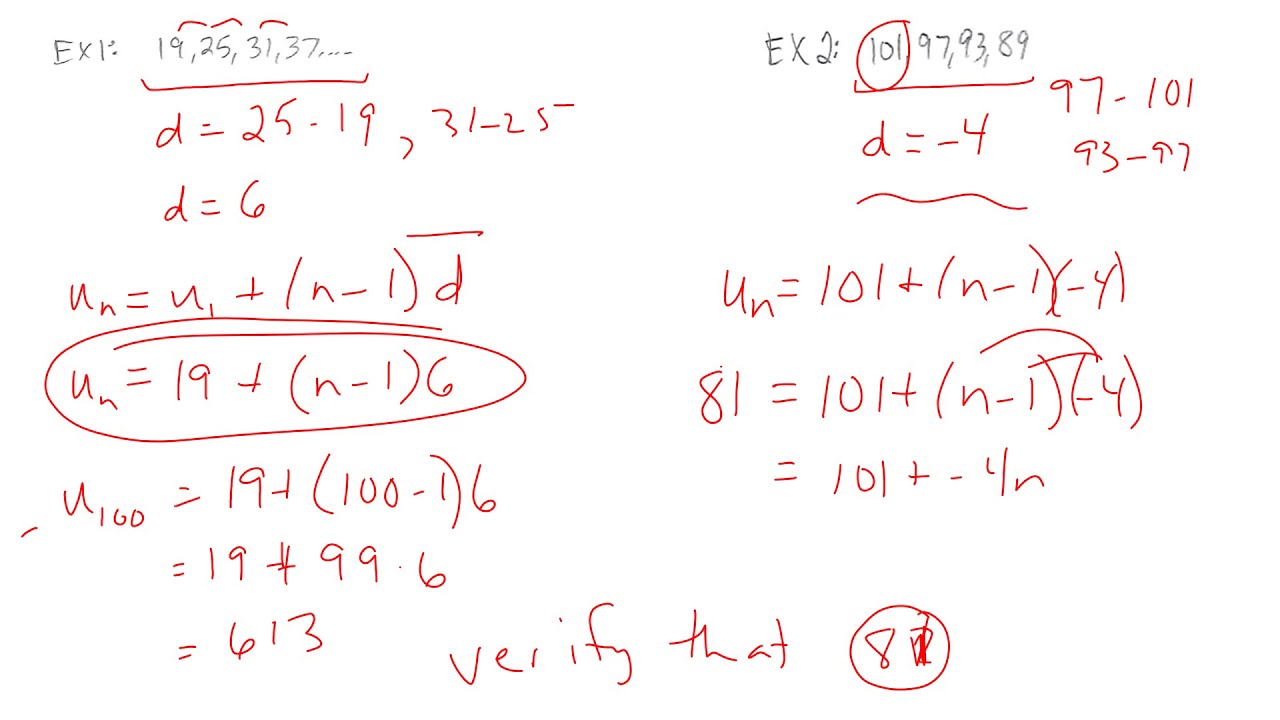 EX1: 19, 25, 31, 37....
d = 25 - 19 , 31-25
d = 6
uₙ = u₁ + (n-1) d
uₙ = 19 + (n-1)6
u₁₀₀ = 19+(100-1)6
= 19 + 99·6
= 613
EX2: 101, 97, 93, 89
97 - 101
d = -4
93-97
uₙ = 101+(n-1)(-4)
81 = 101+(n-1)(-4)
= 101 + -4n
verify that 81